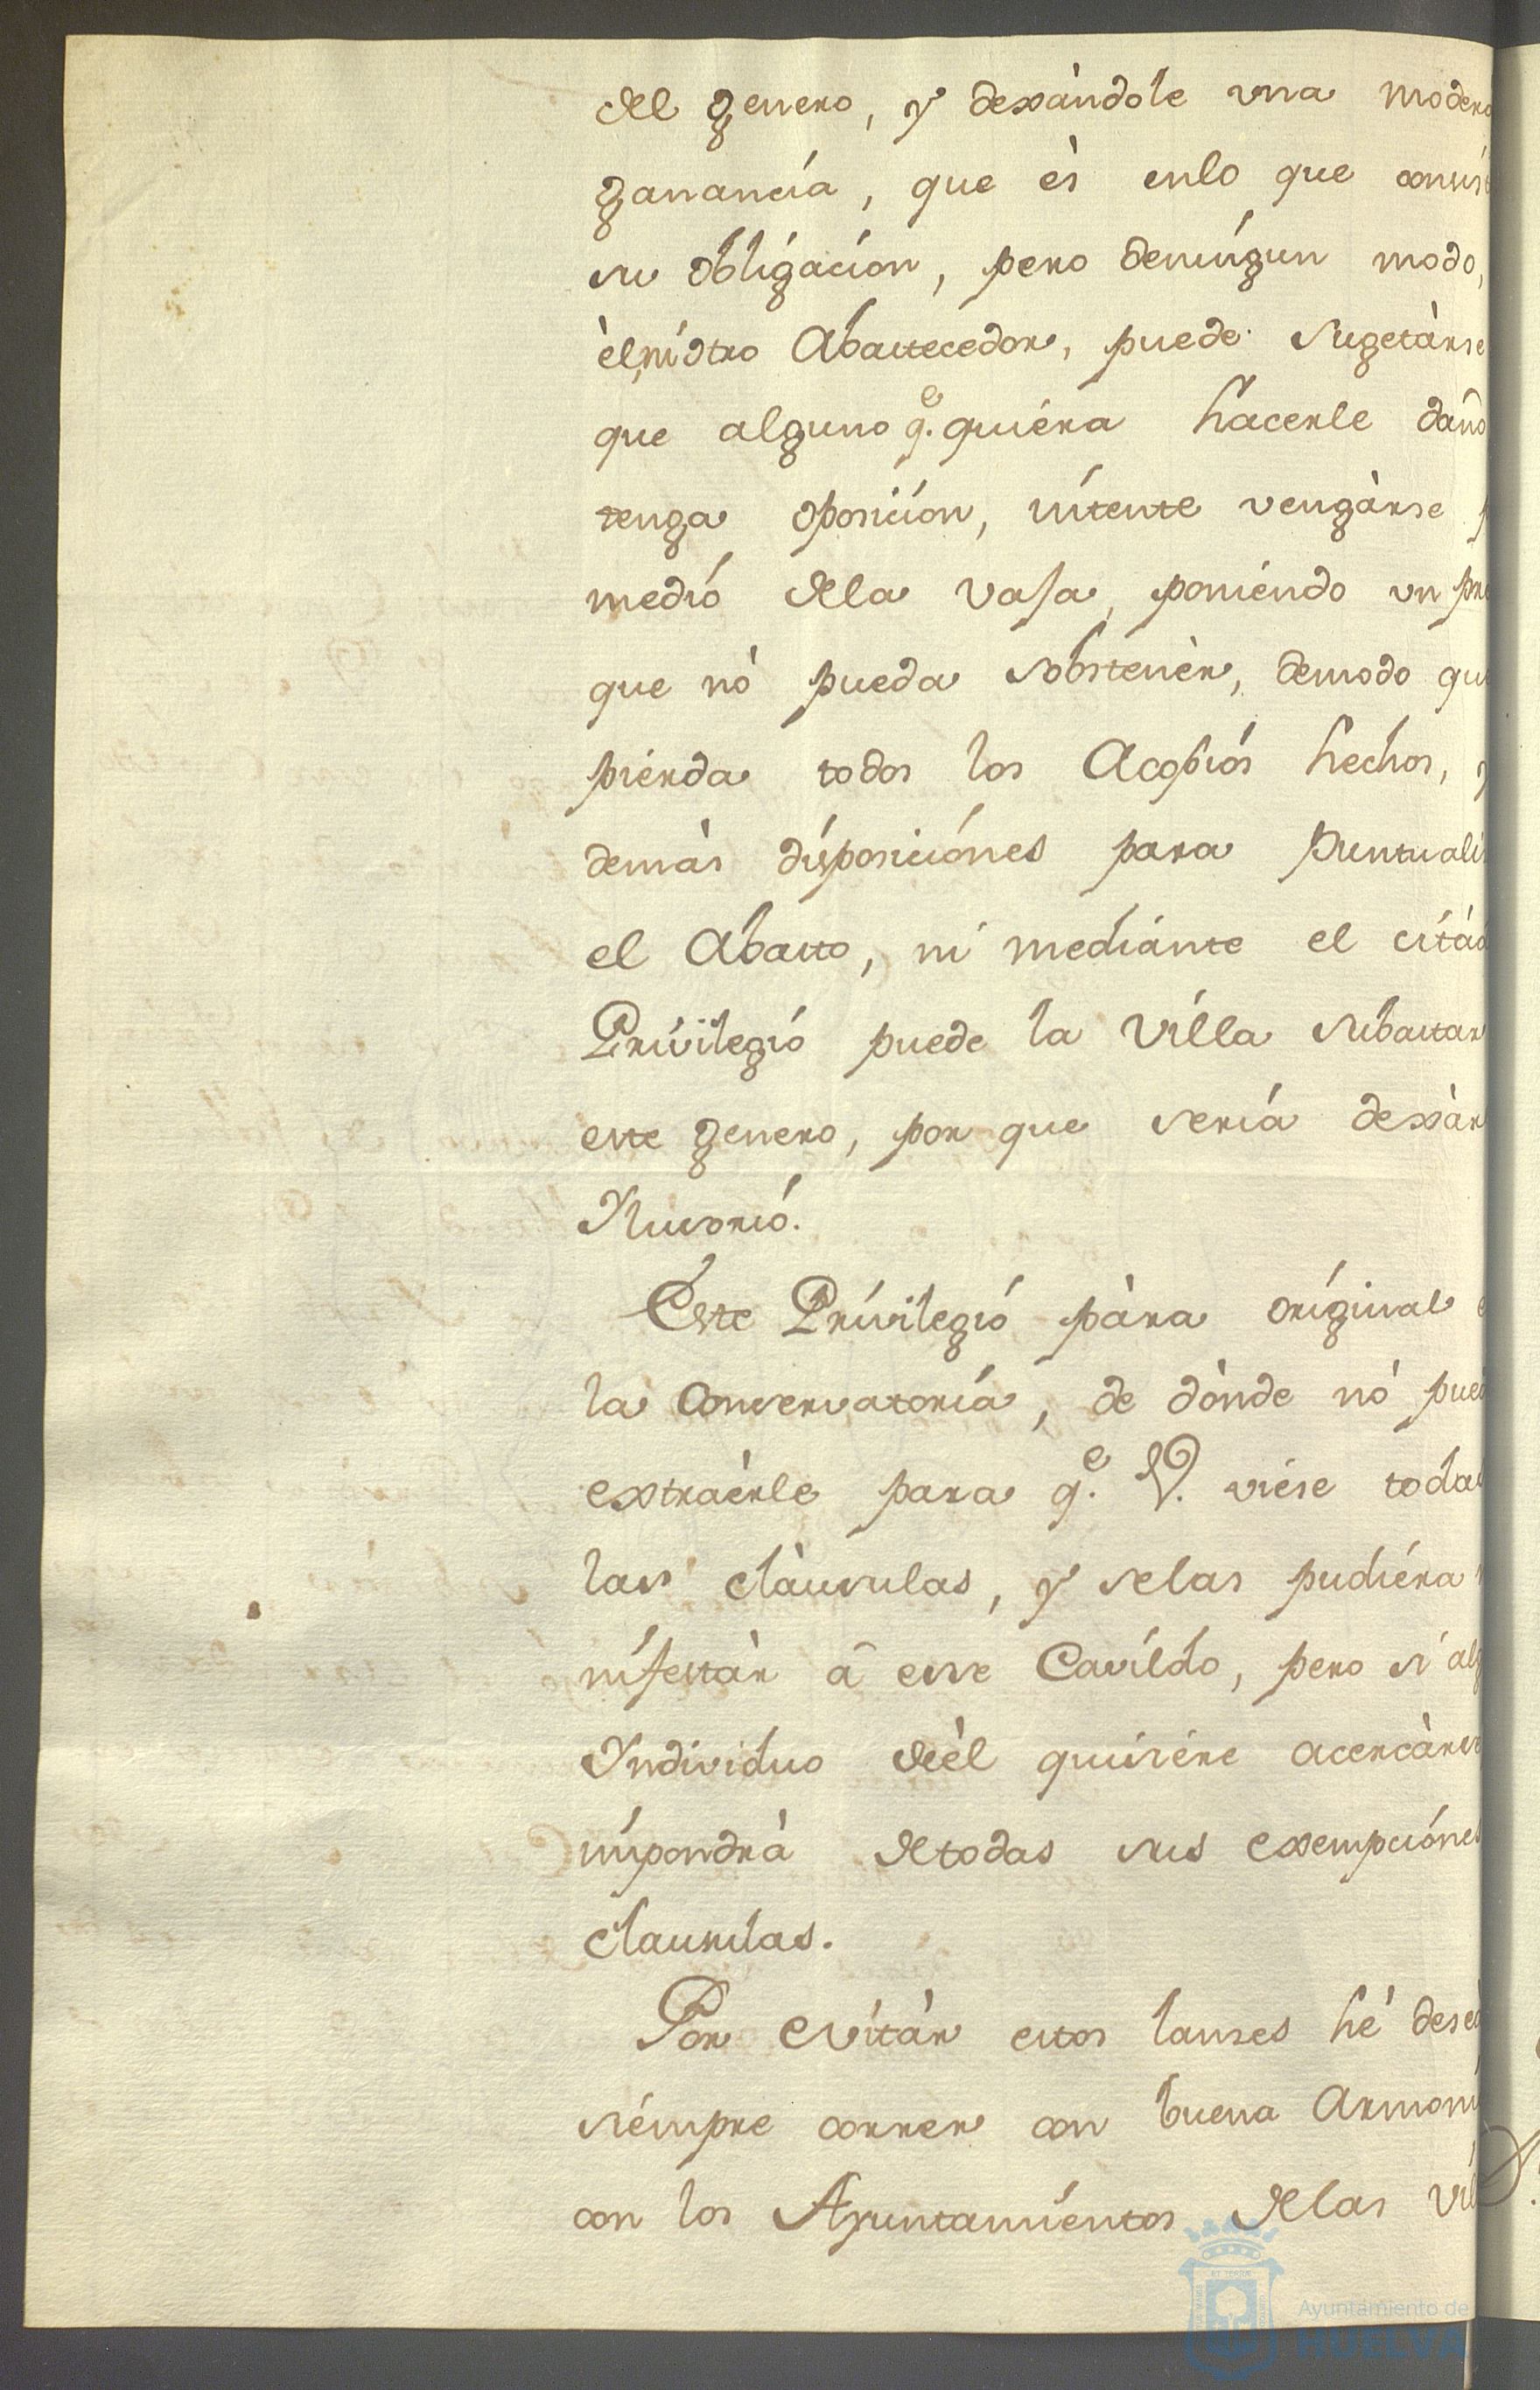 del genero, y dexàndole vna modera
ganancía, que ès enlo que consíst
su obligacíon, pero deníngun modo,
èl, ní otro Abastecedor, puede sugetàrse
que alguno q.e quiéra hacerle daño
tenga oposicíon, íntente vengàrse p
medió dela vaja, poniéndo vn pre
que nò pueda sobstenèr, demodo que
piérda todos los Acopiós hechos, y
demàs dísposiciónes para puntualiz
el Abasto, ni mediánte el citàd
Privilegió puede la Villa subastar
este genero, por que sería dexàr
Ylusorió.
Este Privilegió pàra oríginal e
la Conservatoría, de dònde nò pued
extraèrle para q.e V. viése todas
las clàusulas, y selas pudiéra m
nifestàr â ese Cavíldo, pero si alg
Yndividuo deèl quisiére acercàrse
impondrà detodas sus exempciónes
clausulas.
Por evitàr estos lanzes hé desea
siémpre correr con buena Armoní
con los Ayuntamiéntos delas vil
Ayuntamiento de
HUELVA